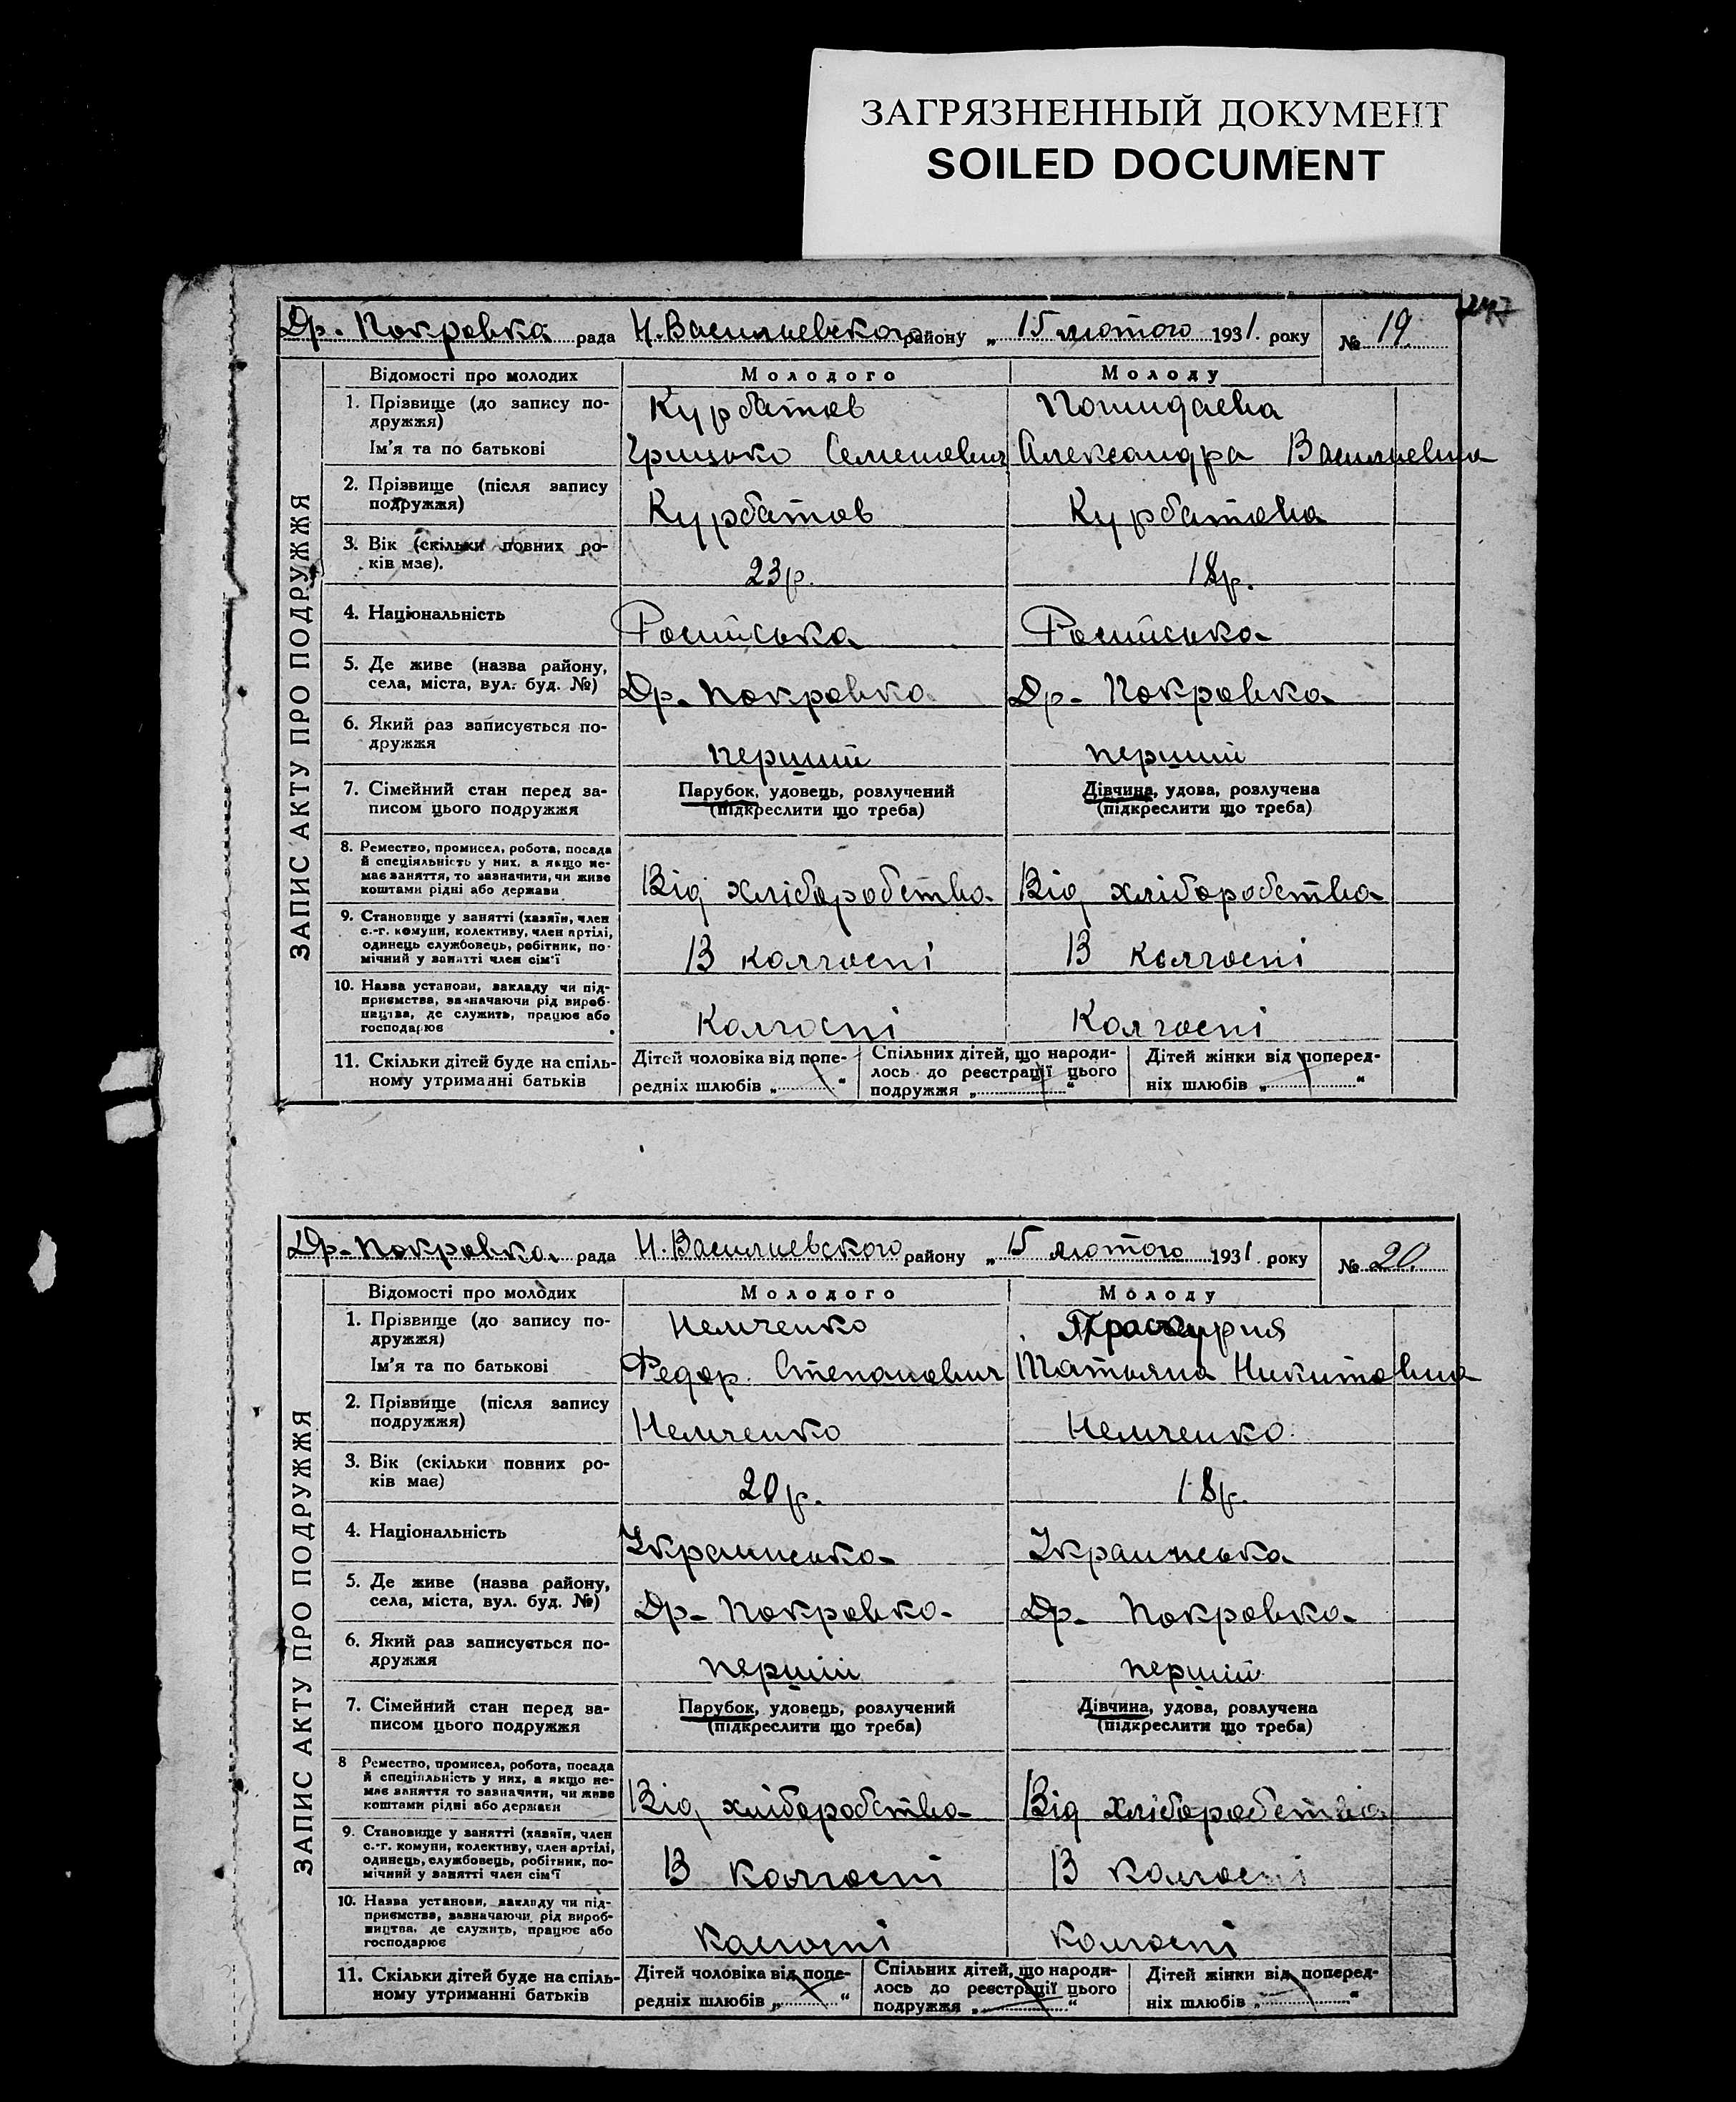 ЗАГРЯЗНЕННЫЙ ДОКУМЕНТ
SOILED DOCUMENT
Др-Покровка рада Н.Васильевского району „ 15 лютого 1931. року № 19.
ЗАПИС АКТУ ПРО ПОДРУЖЖЯ
Відомості про молодих Молодого Молоду
1. Прізвище (до запису по- Курбатов
дружжя)
Ім'я та по батькові Грицько Семенович Александра Васильевна
2. Прізвище (після запису
подружжя) Курбатов Курбатова
3. Вік (скільки повних ро-
ків має). 23р. 18р.
4. Національність Росийська Росийська
5. Де живе (назва району,
села, міста, вул. буд. №) Др-Покровка Др-Покровка
6. Який раз записується по-
дружжя перший перший
7. Сімейний стан перед за- Парубок, удовець, розлучений Дівчина, удова, розлучена
писом цього подружжя (підкреслити що треба) (підкреслити що треба)
8. Ремество, промисел, робота, посада
й спеціяльність у них, а якщо не-
має заняття, то зазначити, чи живе
коштами рідні або держави Від хліборобства Від хліборобства
9. Становище у занятті (хазяїн, член
с.-г. комуни, колективу, член артілі,
одинець службовець, робітник, по-
мічний у занятті член сім'ї В колгоспі В колгоспі
10. Назва установи, закладу чи під-
приємства, зазначаючи рід вироб-
ництва, де служить, працює або
господарює Колгоспі Колгоспі
11. Скільки дітей буде на спіль- Дітей чоловіка від попе- Спільних дітей, що народи- Дітей жінки від поперед-
ному утриманні батьків редніх шлюбів „ “ лось до реєстрації цього ніх шлюбів „ “
подружжя „ “
Др-Покровка рада Н.Васильевского району „ 15 лютого 1931. року № 20.
ЗАПИС АКТУ ПРО ПОДРУЖЖЯ
Відомості про молодих Молодого Молоду
1. Прізвище (до запису по- Немченко
дружжя)
Ім'я та по батькові Федор Степанович Татьяна Никитовна
2. Прізвище (після запису
подружжя) Немченко Немченко
3. Вік (скільки повних ро-
ків має) 20р. 18р.
4. Національність Украинська Украинська
5. Де живе (назва району,
села, міста, вул. буд. №) Др-Покровка Др-Покровка
6. Який раз записується по-
дружжя перший перший
7. Сімейний стан перед за- Парубок, удовець, розлучений Дівчина, удова, розлучена
писом цього подружжя (підкреслити що треба) (підкреслити що треба)
8 Ремество, промисел, робота, посада
й спеціяльність у них, а якщо не-
має заняття то зазначити, чи живе
коштами рідні або держави Від хліборобства Від хліборобства
9. Становище у занятті (хазяїн, член
с.-г. комуни, колективу, член артілі,
одинець, службовець, робітник, по-
мічний у занятті член сім'ї В колгоспі В колгоспі
10. Назва установи, закладу чи під-
приємства, зазначаючи рід вироб-
ництва, де служить, працює або
господарює Колгоспі Колгоспі
11. Скільки дітей буде на спіль- Дітей чоловіка від попе- Спільних дітей, що народи- Дітей жінки від поперед-
ному утриманні батьків редніх шлюбів „ “ лось до реєстрації цього ніх шлюбів „ “
подружжя „ “